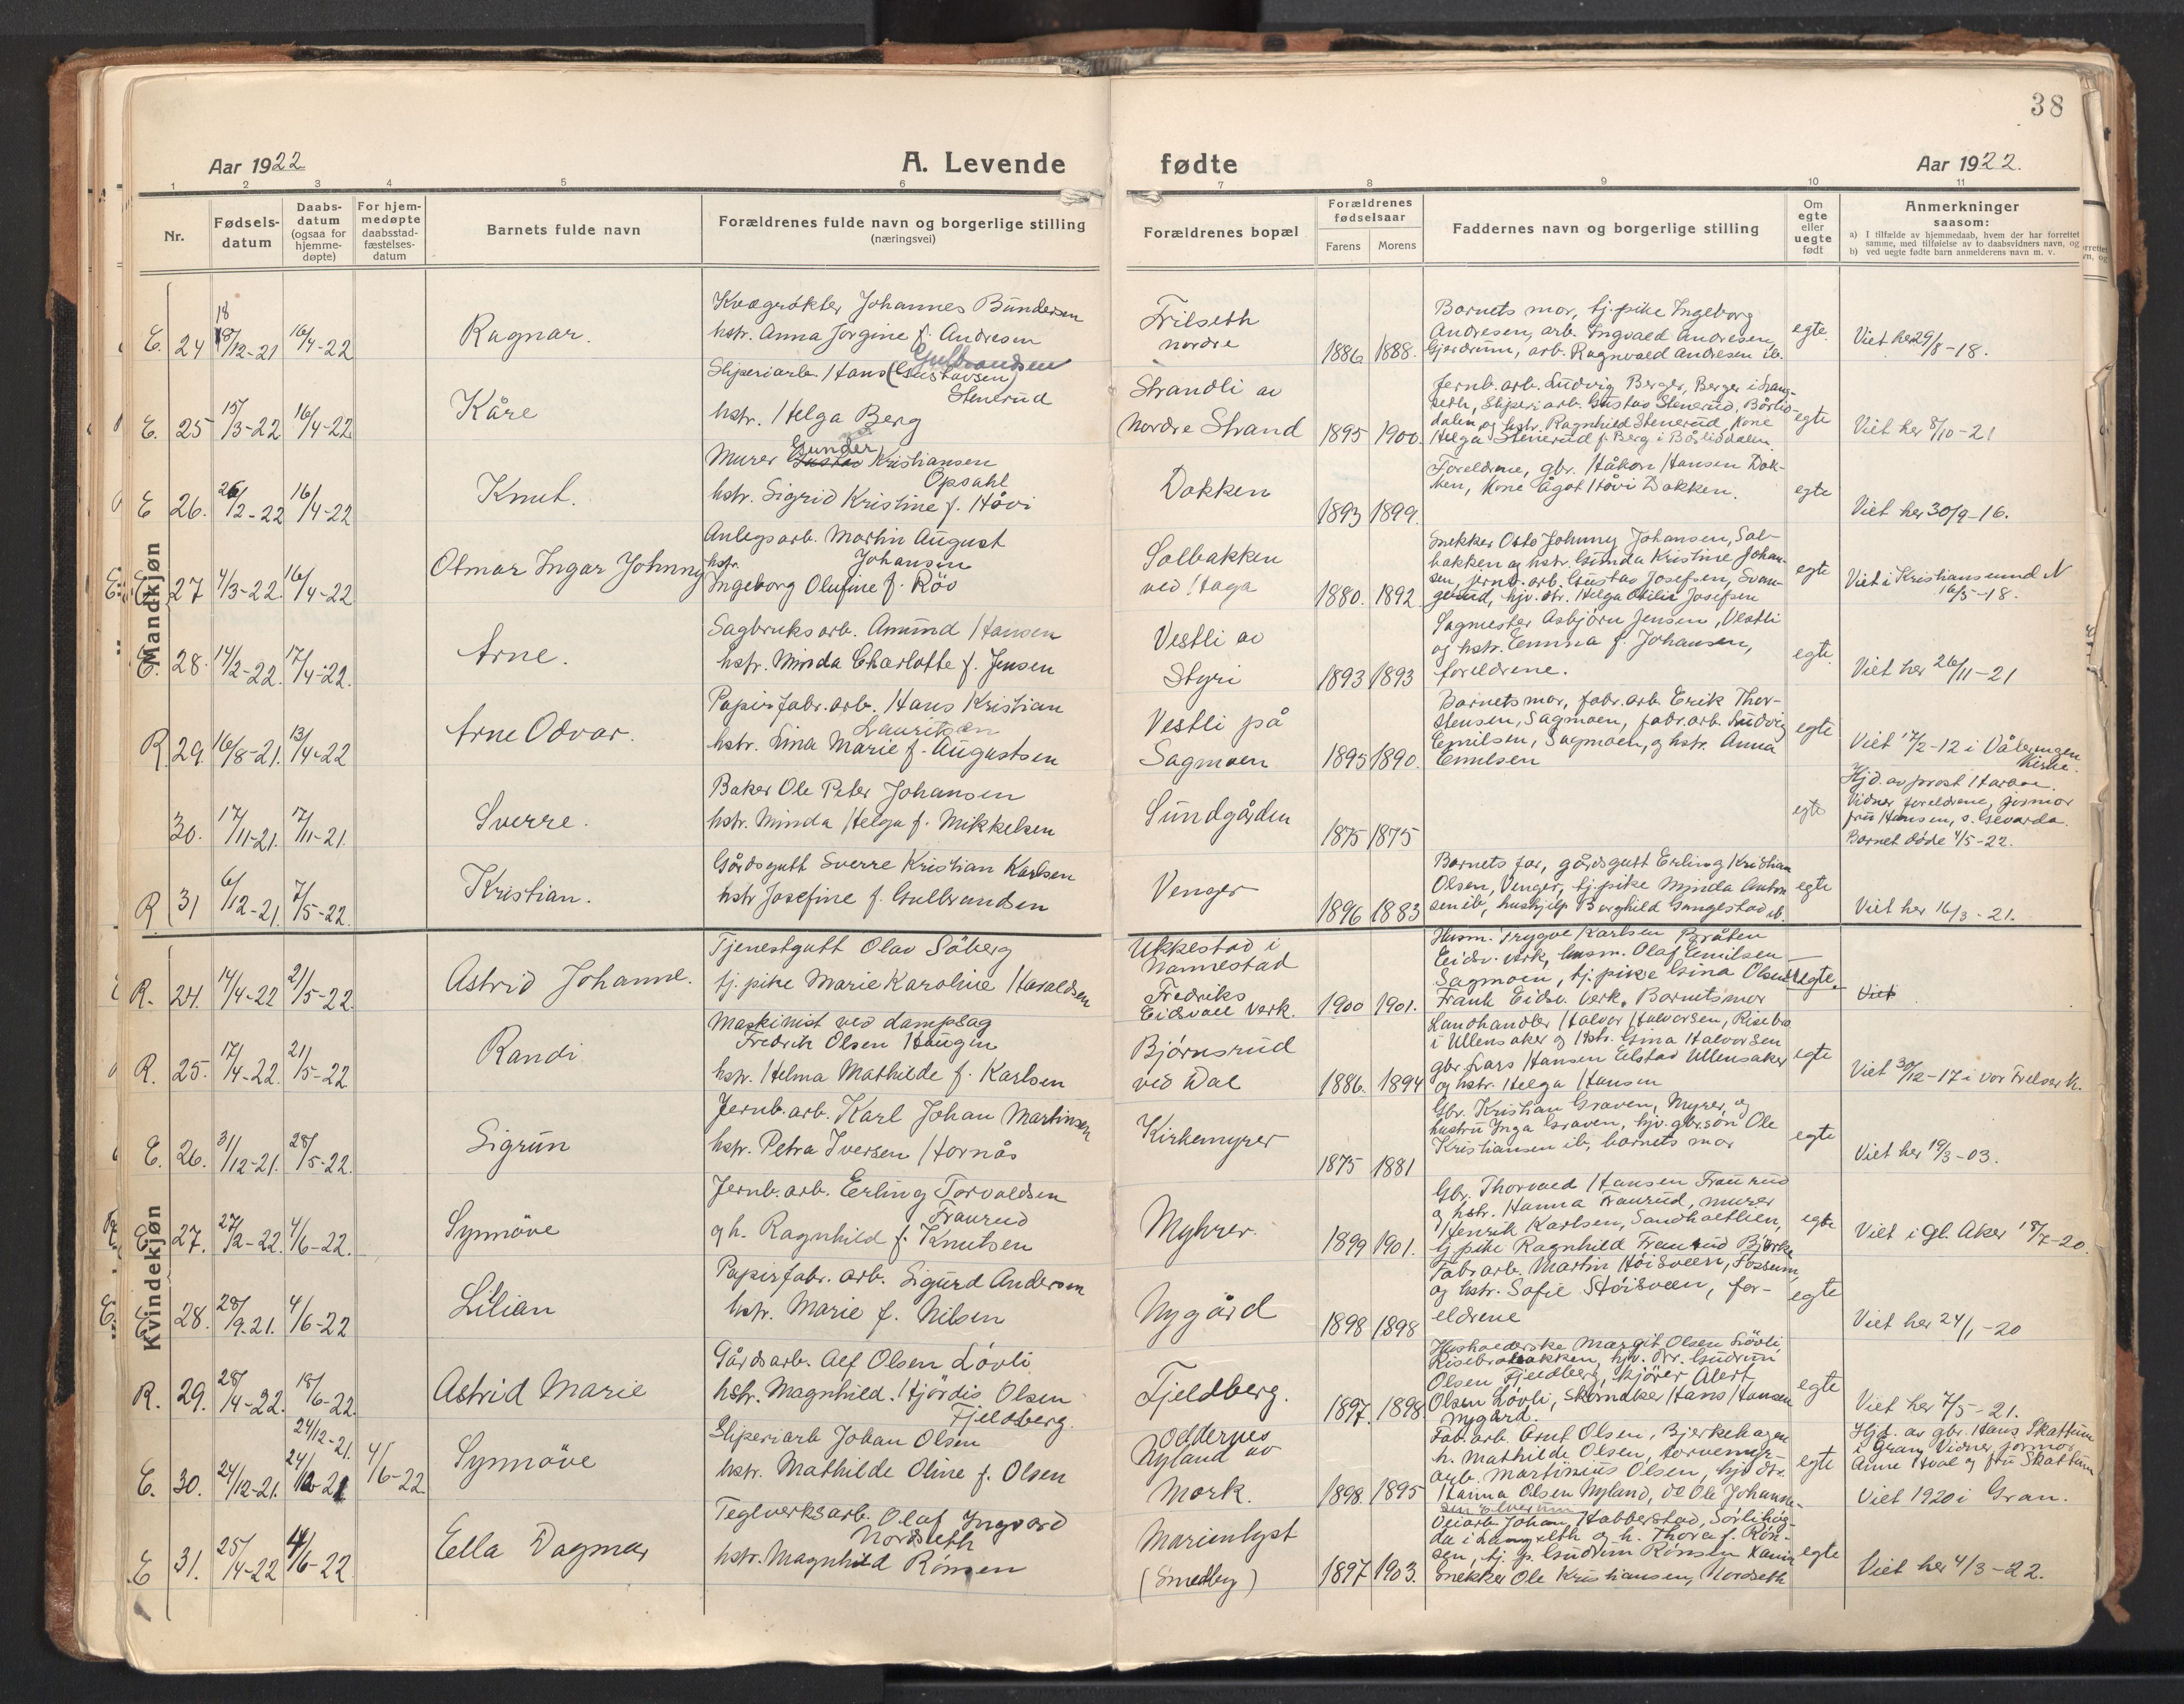 38
Aar 1922
A. Levende
fødte
Aar 1922.
1 2 3 4 5 6 7 8 9 10 11
Nr.
Fødsels-
datum
Daabs-
datum
(ogsaa for
hjemme-
døpte)
For hjem-
medøpte
daabsstad-
fæstelses-
datum
Barnets fulde navn
Forældrenes fulde navn og borgerlige stilling
(næringsvei)
Forældrenes bopæl
Forældrenes
fødselsaar
Farens
Morens
Faddernes navn og borgerlige stilling
Om
egte
eller
uegte
født
Anmerkninger
saasom:
a) I tilfælde av hjemmedaab, hvem der har forrettet
samme, med tilføielse av to daabsvidners navn, og
b) ved uegte fødte barn anmelderens navn m. v.
Mandkjøn
E. 24 18/12-21 16/4-22
Ragnar.
Kvægrøkter Johannes Bundersen
hstr. Anna Jorgine f. Andresen
Frilseth
nordre
1886 1888.
Barnets mor, tj.pike Ingeborg
Andresen, arb. Ingvald Andresen,
Gjerdrum, arb. Ragnvald Andresen ib.
egte.
Viet her 29/8-18.
E. 25 15/3-22 16/4-22
Kåre
Sliperiarb. Hans (Gustavsen) Gulbrandsen
Stenerud
hstr. Helga Berg
Strandli av
Nordre Strand
1895 1900.
Jernb.arb. Ludvig Berger, Berger i Lang-
seth, Sliperiarb. Gustav Stenerud, Bårlid-
dalen, og hstr. Ragnhild Stenerud, Kone
Helga Stenerud f. Berg i Bårliddalen
egte
Viet her 8/10-21
E 26. 26/2-22 16/4-22
Knut.
Murer Gustav Gunder Kristiansen
Opsahl
hstr. Sigrid Kristine f. Håvi
Dokken
1893 1899.
Foreldrene, gbr. Håkon Hansen Dok-
ken, Kone Ågot Håvi Dokken.
egte
Viet her 30/9-16.
E. 27 4/3-22. 16/4-22
Otmar Ingar Johnny
Anlegsarb. Martin August
Johansen
hstr.
Ingeborg Olufine f. Röv
Solbakken
ved Haga
1880. 1892
Snekker Otto Johnny Johansen, Sol-
bakken og hstr. Gunda Kristine Johan-
sen, jernb.arb. Gustav Josefsen, Svan-
gerud, hjv. dtr. Helga Otilie Josefsen
egte
Viet i Kristiansund N
16/5-18.
E. 28. 14/2-22. 17/4-22.
Arne.
Sagbruksarb. Amund Hansen
hstr. Minda Charlotte f. Jensen
Vestli av
Styri
1893 1893
Sagmester Asbjörn Jensen, Vestli
og hstr. Emma f. Johansen,
foreldrene.
egte.
Viet her 26/11-21
R. 29. 16/8-21. 13/4-22
Arne Odvar.
Papirfabr.arb. Hans Kristian
Lauritzen
hstr. Lina Marie f. Augustsen
Vestli på
Sagmoen
1895 1890.
Barnets mor, fabr.arb. Erik Thor-
stensen, Sagmoen, fabr.arb. Ludvig
Emilsen, Sagmoen, og hstr. Anna
Emilsen
egte
Viet 17/2-12 i Vålerengen
Kirke.
30. 17/11-21. 17/11-21.
Sverre.
Baker Ole Peter Johansen
hstr. Minda Helga f. Mikkelsen
Sundgården
1875 1875
egte
Hjd. av prost Harboe.
Vidner foreldrene, jormor
fru Hansen, s. Gevarda.
Barnet døde 4/5-22.
R. 31 6/12-21. 7/5-22
Kristian.
Gårdsgutt Sverre Kristian Karlsen
hstr Josefine f. Gulbrandsen
Venger
1896 1883
Barnets far, gårdsgutt Erling Kristian
Olsen, Venger, tj.pike Minda Anton
sen ib, hushjelp Borghild Gangestad ib.
egte
Viet her 16/3-21.
Kvindekjøn
R. 24. 14/4-22 21/5-22.
Astrid Johanne.
Tjenestgutt Olav Såberg
tj. pike Marie Karoline Haraldsen
Ukkestad i
Nannestad
Fredriks
Eidsvoll Verk.
1900 1901.
Husm. Trygve Karlsen Bråten
Eidsv. Verk, husm. Olaf Emilsen
Sagmoen, tj.pike Gina Olsen
Frank Eidsv. Verk, Barnets mor
uegte.
Viet
R. 25. 17/4-22. 21/5-22
Randi
Maskinist ved dampsag
Fredrik Olsen Haugen
hstr. Helma Mathilde f. Karlsen
Björnsrud
ved Dal
1886. 1894
Landhandler Halvor Halvorsen, Risebro
i Ullensaker og Hstr. Gina Halvorsen
gbr. Lars Hansen Elstad Ullensaker
og hstr. Helga Hansen
egte
Viet 30/12-17 i Vor Frelser K.
E. 26. 31/12-21. 28/5-22.
Sigrun
Jernb.arb. Karl Johan Martinsen
hstr. Petra Iversen Hornås
Kirkemyrer
1875 1881
Gbr. Kristian Graven, Myrer, og
hustru Inga Graven, hjv. gbr.sön Ole
Kristiansen ib, barnets mor
egte
Viet her 19/3-03.
E. 27. 27/2-22. 4/6-22.
Synnöve
Jernb.arb. Erling Torvaldsen
Traurud
og h. Ragnhild f. Knutsen
Myhrer.
1899 1901.
Gbr. Thorvald Hansen Traurud
og hstr. Hanna Traurud, murer
Henrik Karlsen, Sandholtlien,
tj pike Ragnhild Traurud Bjerke
egte
Viet i Gl. Aker 18/7-20.
E. 28. 28/9.21. 4/6-22
Lilian
Papirfabr. arb. Sigurd Andersen
hstr. Marie f. Nilsen
Nygård
1898 1898
Fabr arb. Martin Höisveen, Fossum,
og hstr. Sofie Höisveen, for-
eldrene
egte
Viet her 24/1-20
R. 29. 28/4-22. 18/6-22.
Astrid Marie
Gårdsarb. Alf Olsen Lövli
hstr. Magnhild Hjördis Olsen
Fjeldberg.
Fjeldberg.
1897. 1898
Husholderske Margit Olsen Lövli
Risebrobakken, hjv. dtr. Gudrun
Olsen Fjeldberg, kjörer Alert
Olsen Lövli, Skomaker Hans Hansen
Nygård.
egte
Viet her 7/5-21.
E. 30. 24/12-21. 24/12-21. 24/12-21 4/6-22.
Synnöve
Sliperiarb Johan Olsen
hstr. Mathilde Oline f. Olsen
Oddernes
Nyland av
Mork.
1898. 1895
Fab.arb. Arnt Olsen, Bjerkehagen
h. Mathilde Olsen, torvemyr-
arb. Martinius Olsen, hjv dtr.
Hanna Olsen Nyland, Ole Johanne-
sen Elverum
egte
Hjd. av gbr. Hans Skattum
i Gran, Vidner, jormor
Anne Hval og fru Skattum
Viet 1920 i Gran.
E 31. 25/4-22 4/6-22.
Ella Dagmar
Teglverksarb. Olaf Ingvard
Nordseth
hstr. Magnhild Rönsen
Marienlyst
(Smedby)
1897 1903.
Veiarb Johan Habberstad, Sörlihög-
da i Langseth og h. Thora f. Rön-
sen, tj. p. Gudrun Rönsen
Snekker Ole Kristiansen, Nordseth
egte
Viet her 4/3-22.